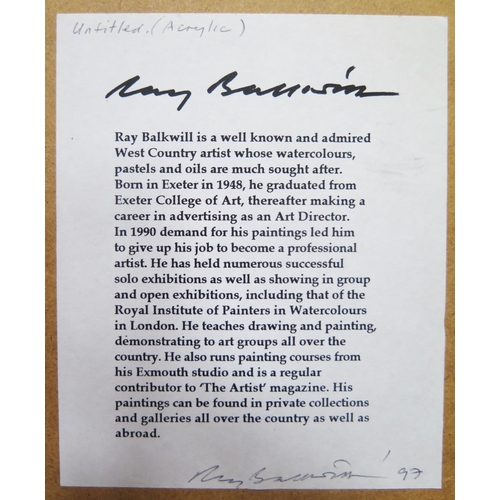 Untitled. (Acrylic)
Ray Balkwill
Ray Balkwill is a well known and admired
West Country artist whose watercolours,
pastels and oils are much sought after.
Born in Exeter in 1948, he graduated from
Exeter College of Art, thereafter making a
career in advertising as an Art Director.
In 1990 demand for his paintings led him
to give up his job to become a professional
artist. He has held numerous successful
solo exhibitions as well as showing in group
and open exhibitions, including that of the
Royal Institute of Painters in Watercolours
in London. He teaches drawing and painting,
demonstrating to art groups all over the
country. He also runs painting courses from
his Exmouth studio and is a regular
contributor to ‘The Artist’ magazine. His
paintings can be found in private collections
and galleries all over the country as well as
abroad.
Ray Balkwill '97